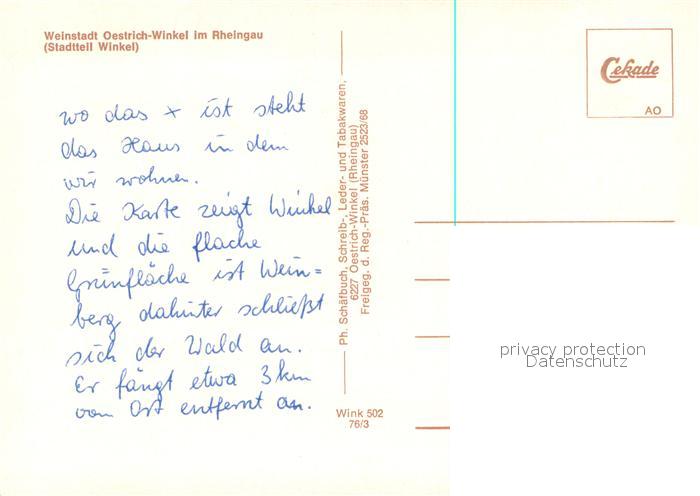 Weinstadt Oestrich-Winkel im Rheingau
(Stadtteil Winkel)
wo das x ist steht
das Haus in dem
wir wohnen.
Die Karte zeigt Winkel
und die flache
Grünfläche ist Wein=
berg dahinter schließt
sich der Wald an.
Er fängt etwa 3 km
vom Ort entfernt an.
Ph. Schäfbuch, Schreib-, Leder- und Tabakwaren,
6227 Oestrich-Winkel (Rheingau)
Freigeg. d. Reg.-Präs. Münster 2523/68
Wink 502
76/3
Cekade
AO
privacy protection
Datenschutz